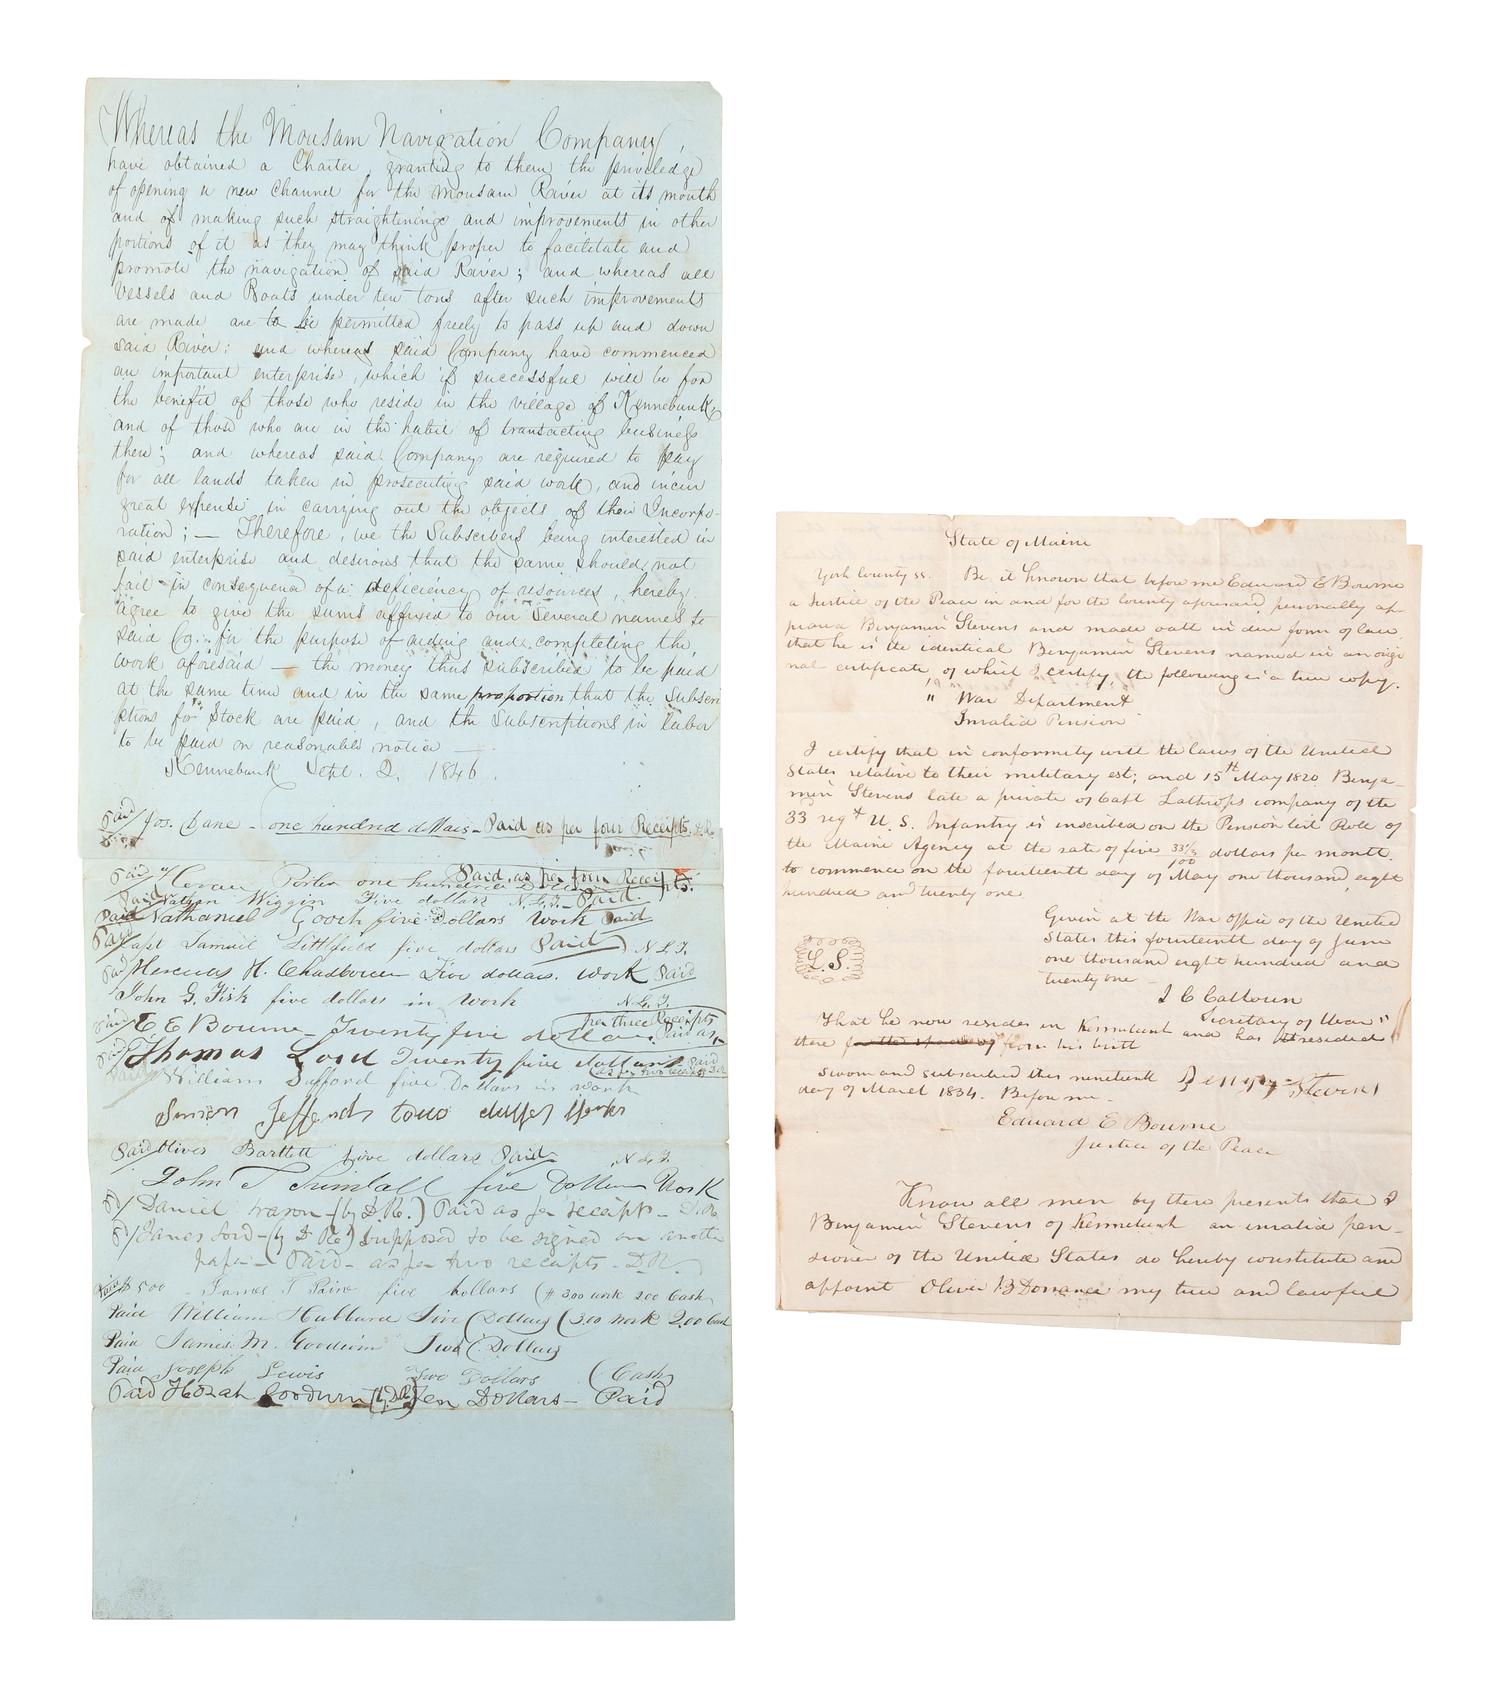 Whereas the Mousam Navigation Company,
have obtained a Charter granting to them the priviledge
of opening a new channel for the Mousam River at its mouth
and of making such straightenings and improvements in other
portions of it as they may think proper to facilitate and
promote the navigation of said River; and whereas all
Vessels and Boats under ten tons after such improvements
are made are to be permitted freely to pass up and down
said River: and whereas said Company have commenced
an important enterprise, which if successful will be for
the benefit of those who reside in the village of Kennebunk,
and of those who are in the habit of transacting business
there; and whereas said Company are required to pay
for all lands taken in prosecuting said work, and incur
great expense in carrying out the objects of their Incorpo-
ration; — Therefore, we the Subscribers being interested in
said enterprise and desirous that the same should not
fail in consequence of a deficiency of resources, hereby
agree to give the sums affixed to our several names to
said Co. for the purpose of aiding and completing the
work aforesaid — the money thus subscribed to be paid
at the same time and in the same proportion that the Subscri
ptions for Stock are paid, and the Subscriptions in labor
to be paid on reasonable notice —
Kennebunk Sept. 2. 1846.
Paid Jos. Dane - one hundred dollars - Paid as per four Receipts. D.R.
Paid Porter one hundred Paid as per four Receipts.
Paid Nathan Wiggin Five dollars N.L.T. Paid.
Paid Nathaniel Gooch five dollars work Paid
Paid Capt Samuel Littlefield five dollars Paid N.L.T.
Paid H. Chadbourn Five dollars. work Paid
John G. Fisk five dollars in work N.L.T.
Paid E E Bourne - Twenty five dollars. per three Receipts Paid as
Paid Thomas Lord Twenty five dollars Paid as per two receipts
William Safford five Dollars in work
two
Paid Oliver Bartlett five dollars Paid N.L.T.
John T five Dollars Work
Pd/ Daniel - (by D.R.) Paid as per receipt - D.R.
Pd/ James Lord - (by D R) supposed to be signed on another
paper - Paid - as per two receipts - D.R.
Paid $5.00 James T Paine five dollars ($3.00 work 2.00 Cash
Paid William Hubbard Five Dollars (3.00 Work 2.00 Cash
Paid James M. Goodwin Two Dollars
Paid Joseph Lewis Two Dollars (Cash)
Paid Goodwin (by D.R.) Ten Dollars - Paid
State of Maine
York County ss. Be it known that before me Edward E Bourne
a Justice of the Peace in and for the County aforesaid, personally ap-
peared Benjamin Stevens and made oath in due form of law,
that he is the identical Benjamin Stevens named in an origi
nal certificate, of which I certify, the following is a true copy.
" "War Department
Invalid Pension
I certify that in conformity with the laws of the United
States relative to their military est; and 15th May 1820 Benja-
min Stevens late a private of Capt Lathrops company of the
33 regt U.S. Infantry is inscribed on the Pension list Role of
the Maine Agency at the rate of five 33 1/3/100 dollars per month.
to commence on the fourteenth day of May one thousand eight
hundred and twenty one
Given at the War office of the United
States this fourteenth day of June
one thousand eight hundred and
twenty one -
L.S.
J C Calhoun
Secretary of War"
That he now resides in Kennebunk and has resided
there from his birth
Sworn and subscribed this nineteenth Stevens
day of March 1834. Before me -
Edward E Bourne
Justice of the Peace
Know all men by these presents that I
Benjamin Stevens of Kennebunk an invalid pen-
sioner of the United States do hereby constitute and
appoint Oliver B Dorrance my true and lawful